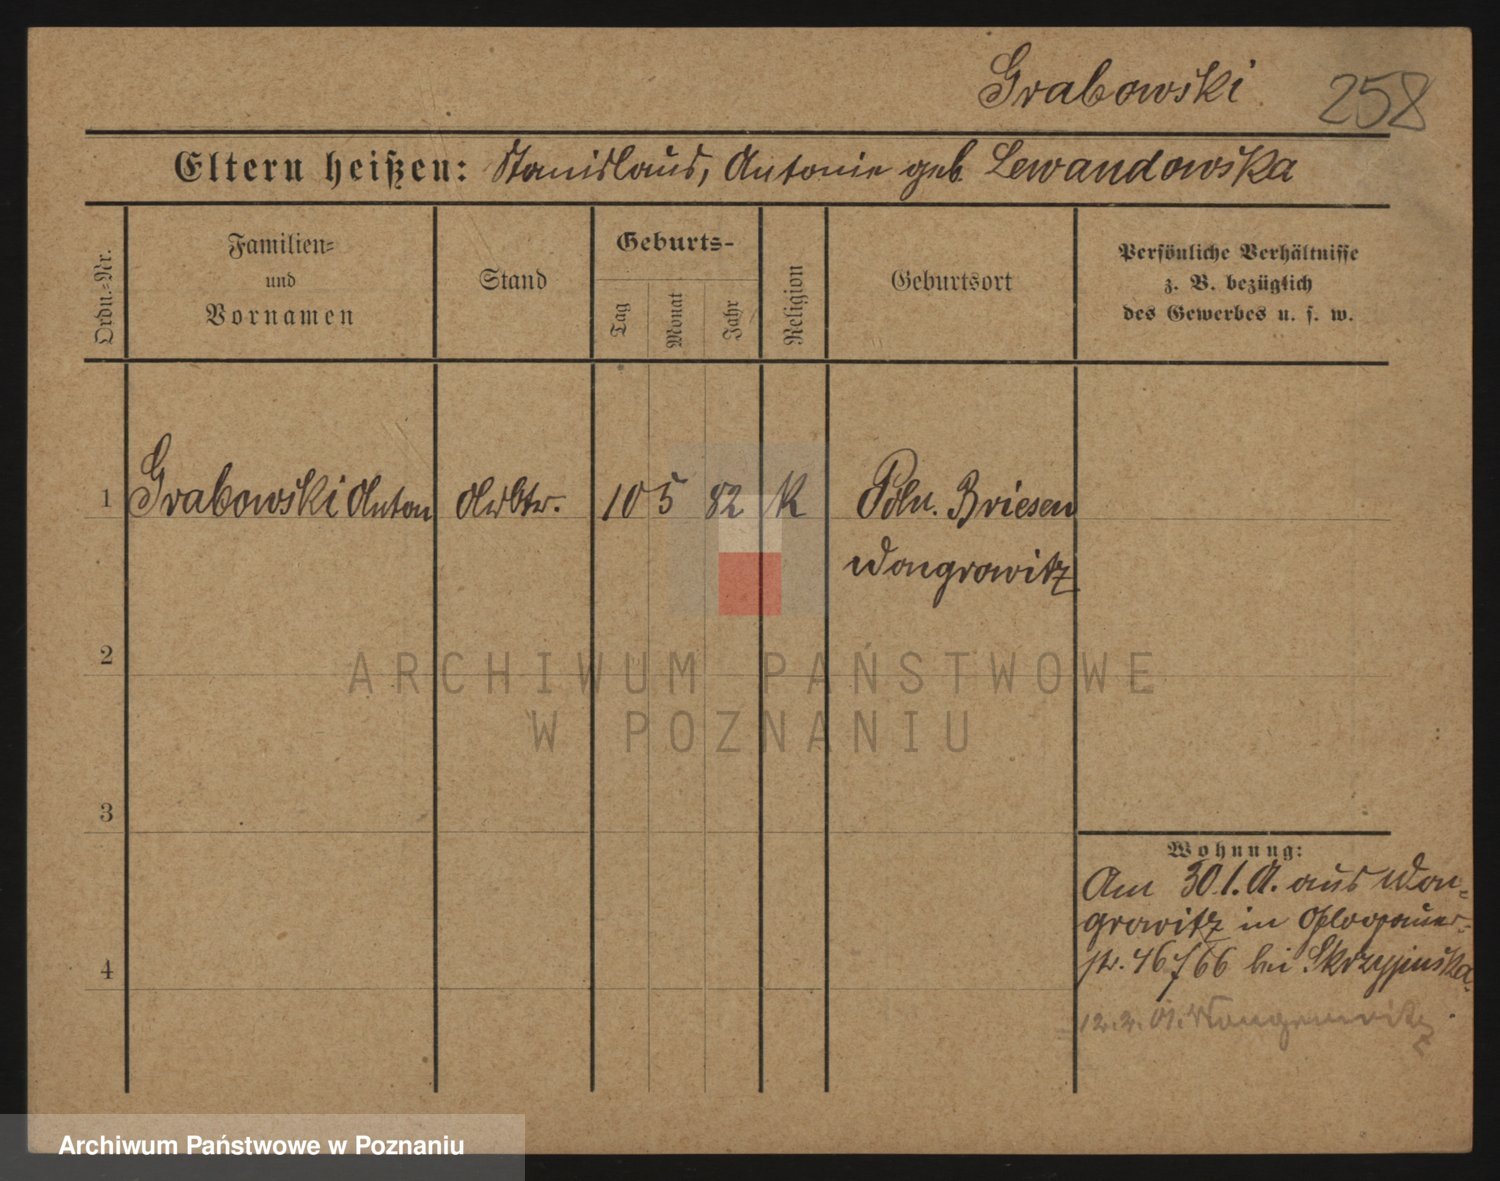 Grabowski 258
Eltern heißen: Stanislaus, Antonie geb. Lewandowska
Ordn.-Nr.
Familien-
und
Vornamen
Stand
Geburts-
Tag
Monat
Jahr
Religion
Geburtsort
Persönliche Verhältnisse
z. B. bezüglich
des Gewerbes u. s. w.
1 Grabowski Anton Arbtr. 10 5 82 K Poln. Briesen
Wongrowitz
2
ARCHIWUM PAŃSTWOWE
W POZNANIU
3
Wohnung:
Am 30.1. aus Won-
growitz in Glogauer-
str. 46/66 bei Skrzypinska
4
12.2. 01. Wongrowitz
Archiwum Państwowe w Poznaniu